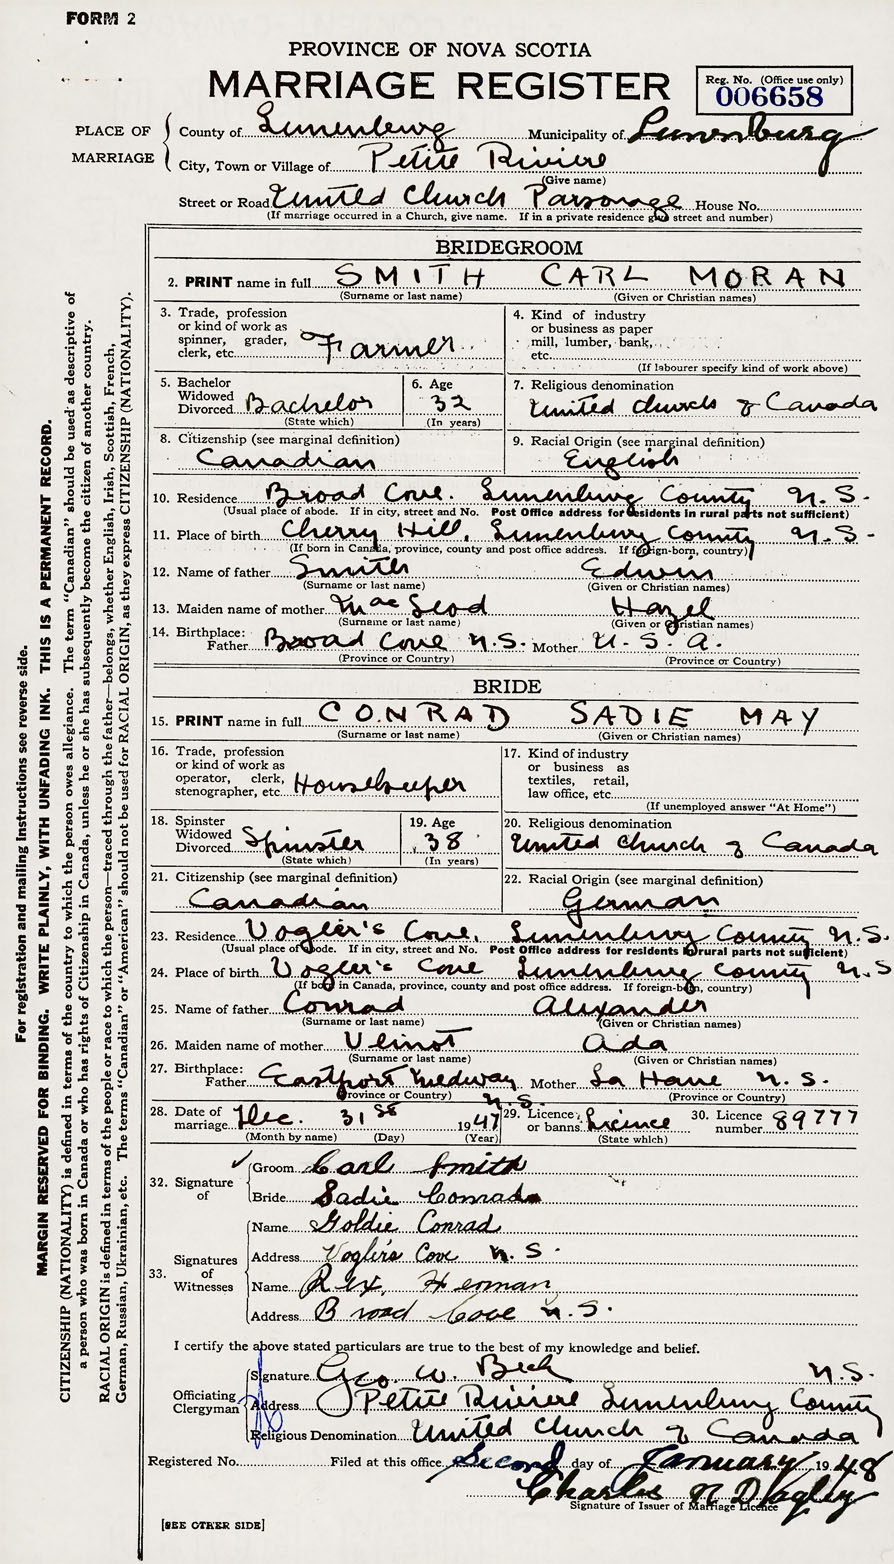 FORM 2
PROVINCE OF NOVA SCOTIA
MARRIAGE REGISTER
Reg. No. (Office use only)
006658
PLACE OF MARRIAGE
County of Lunenburg Municipality of Lunenburg
City, Town or Village of Petite Riviere
(Give name)
Street or Road United Church Parsonage House No.
(If marriage occurred in a Church, give name. If in a private residence give street and number)
BRIDEGROOM
2. PRINT name in full SMITH CARL MORAN
(Surname or last name) (Given or Christian names)
3. Trade, profession
or kind of work as
spinner, grader,
clerk, etc. Farmer
4. Kind of industry
or business as paper
mill, lumber, bank,
etc.
(If labourer specify kind of work above)
5. Bachelor
Widowed
Divorced Bachelor
(State which)
6. Age
32
(In years)
7. Religious denomination
United Church of Canada
8. Citizenship (see marginal definition)
Canadian
9. Racial Origin (see marginal definition)
English
10. Residence Broad Cove. Lunenburg County N.S.
(Usual place of abode. If in city, street and No. Post Office address for residents in rural parts not sufficient)
11. Place of birth Cherry Hill, Lunenburg County N.S.
(If born in Canada, province, county and post office address. If foreign-born, country)
12. Name of father Smith Edwin
(Surname or last name) (Given or Christian names)
13. Maiden name of mother MacLeod Hazel
(Surname or last name) (Given or Christian names)
14. Birthplace:
Father Broad Cove N.S. Mother U.S.A.
(Province or Country) (Province or Country)
BRIDE
15. PRINT name in full CONRAD SADIE MAY
(Surname or last name) (Given or Christian names)
16. Trade, profession
or kind of work as
operator, clerk,
stenographer, etc. Housekeeper
17. Kind of industry
or business as
textiles, retail,
law office, etc.
(If unemployed answer "At Home")
18. Spinster
Widowed
Divorced Spinster
(State which)
19. Age
38
(In years)
20. Religious denomination
United Church of Canada
21. Citizenship (see marginal definition)
Canadian
22. Racial Origin (see marginal definition)
German
23. Residence Vogler's Cove, Lunenburg County N.S.
(Usual place of abode. If in city, street and No. Post Office address for residents in rural parts not sufficient)
24. Place of birth Vogler's Cove Lunenburg County N.S
(If born in Canada, province, county and post office address. If foreign-born, country)
25. Name of father Conrad Alexander
(Surname or last name) (Given or Christian names)
26. Maiden name of mother Veinot Ada
(Surname or last name) (Given or Christian names)
27. Birthplace:
Father Eastport Medway N.S. Mother La Have N.S.
(Province or Country) (Province or Country)
28. Date of
marriage Dec. 31st 1947
(Month by name) (Day) (Year)
29. Licence
or banns Licence
(State which)
30. Licence
number 89777
32. Signature of
Groom Carl Smith
Bride Sadie Conrad
33. Signatures of Witnesses
Name Goldie Conrad
Address Vogler's Cove N.S.
Name Rex Herman
Address Broad Cove N.S.
I certify the above stated particulars are true to the best of my knowledge and belief.
Officiating Clergyman
Signature Geo. W. Beck N.S.
Address Petite Riviere Lunenburg County
Religious Denomination United Church of Canada
Registered No. Filed at this office Second day of January 1948
Charles
Signature of Issuer of Marriage Licence
[SEE OTHER SIDE]
For registration and mailing instructions see reverse side.
MARGIN RESERVED FOR BINDING. WRITE PLAINLY, WITH UNFADING INK. THIS IS A PERMANENT RECORD.
CITIZENSHIP (NATIONALITY) is defined in terms of the country to which the person owes allegiance. The term "Canadian" should be used as descriptive of
a person who was born in Canada or who has rights of Citizenship in Canada, unless he or she has subsequently become the citizen of another country.
RACIAL ORIGIN is defined in terms of the people or race to which the person—traced through the father—belongs, whether English, Irish, Scottish, French,
German, Russian, Ukrainian, etc. The terms "Canadian" or "American" should not be used for RACIAL ORIGIN, as they express CITIZENSHIP (NATIONALITY).